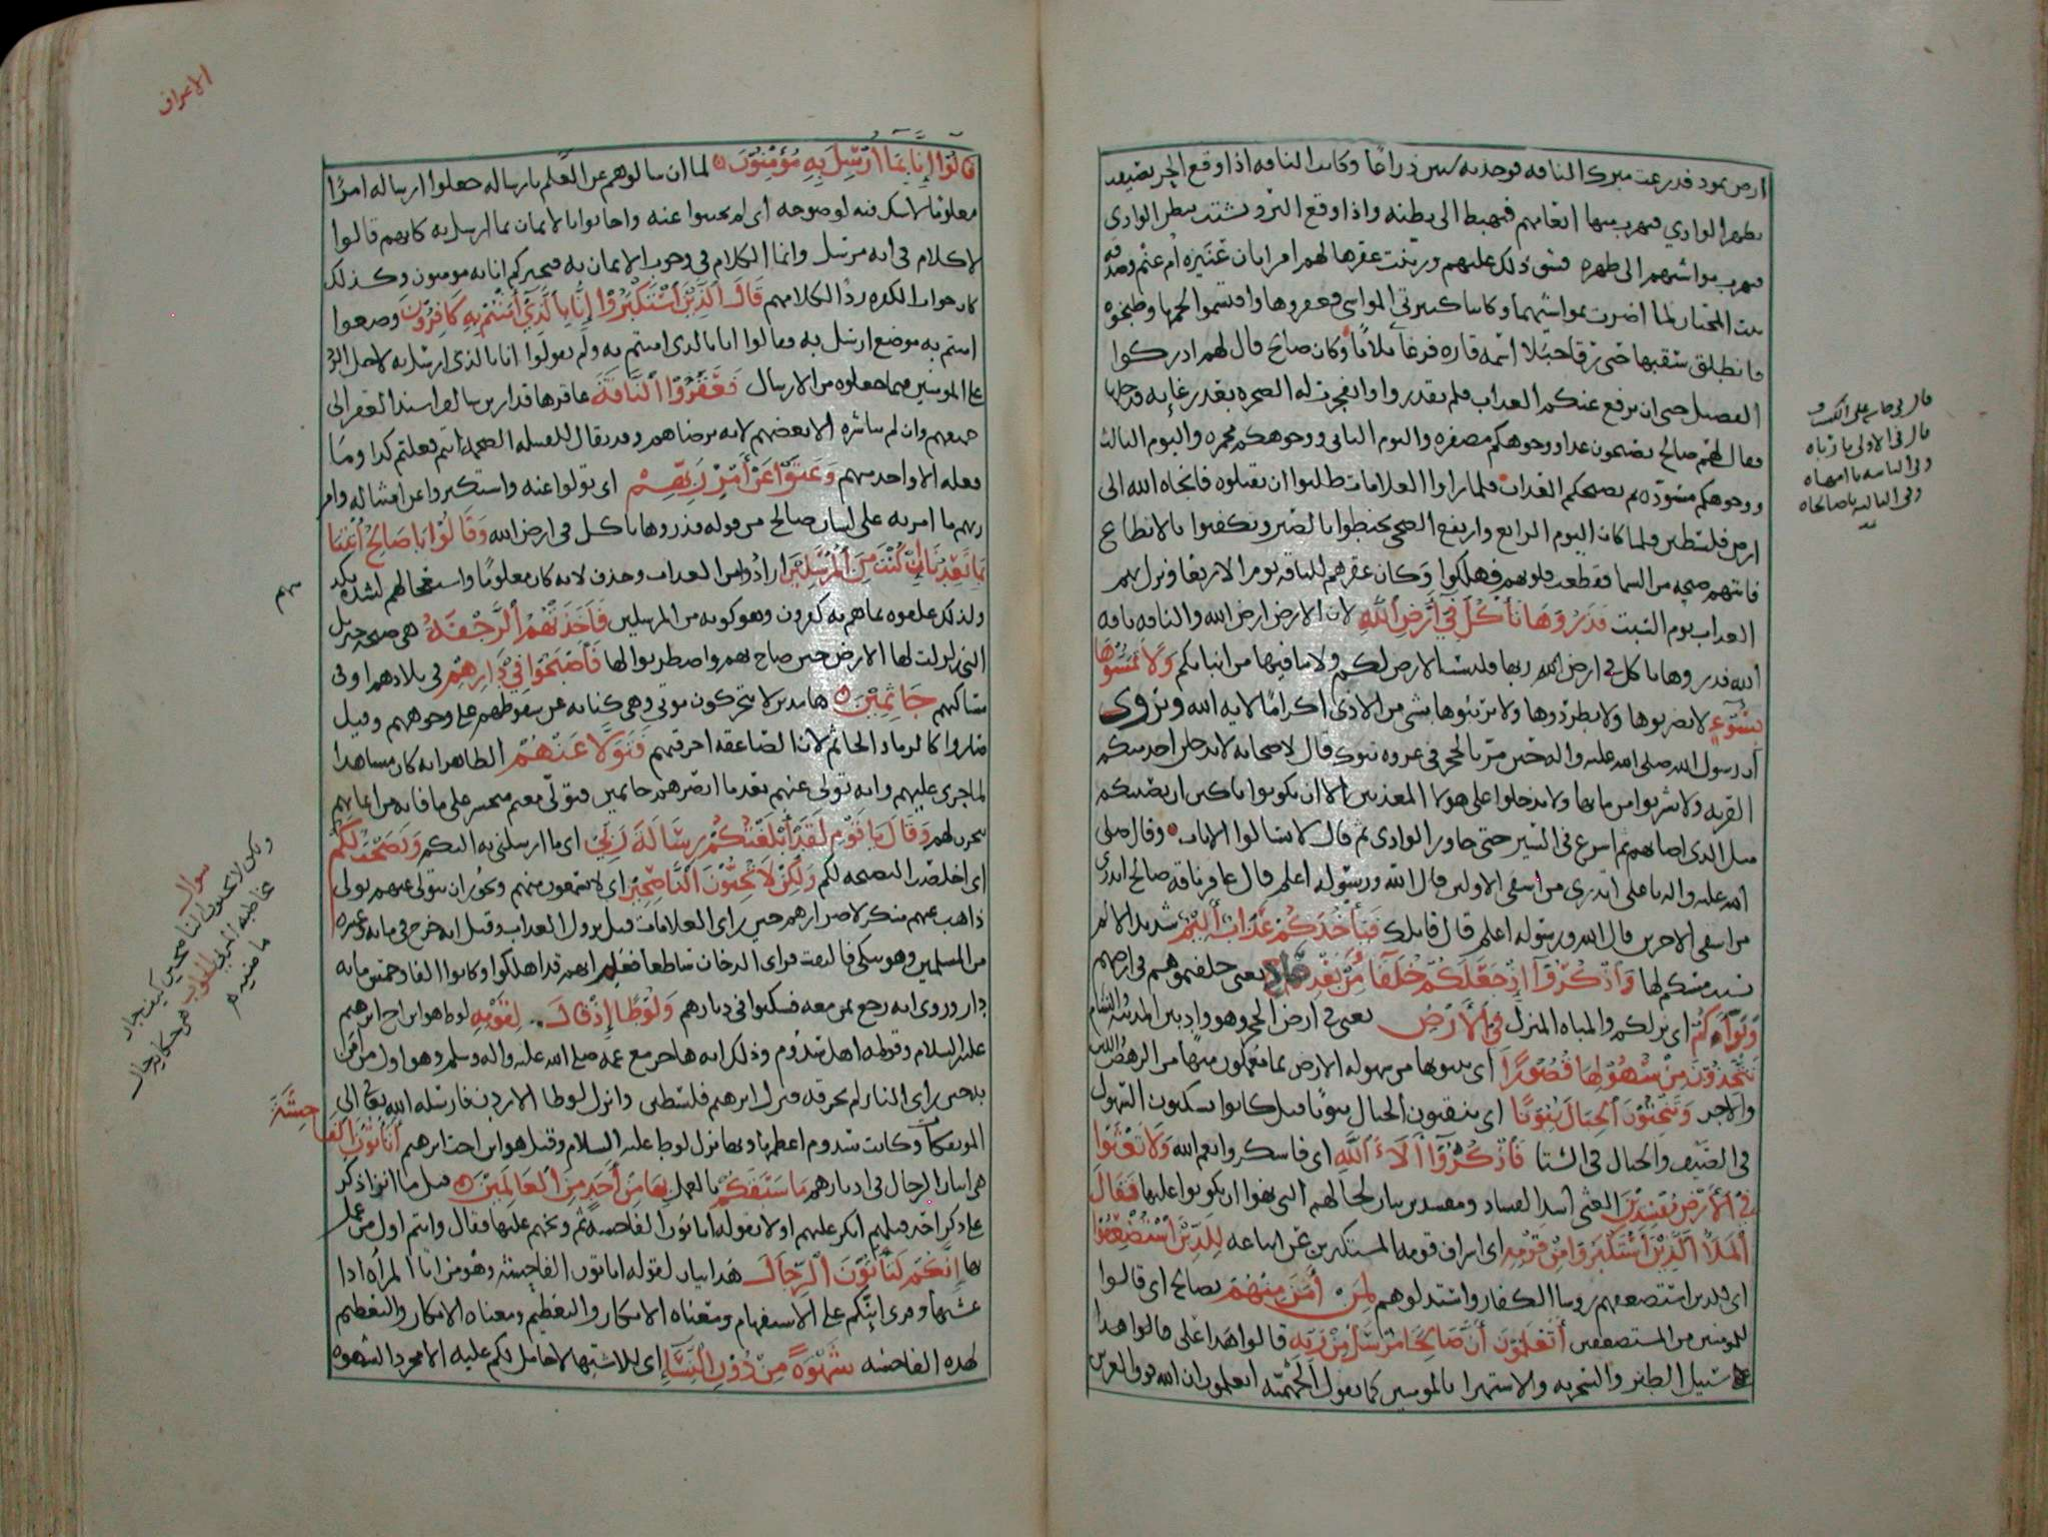 ارض ثمود فذرعت مبرك الناقة فوجدته ستين ذراعا وكانت الناقة اذا وقع الحر تصيفت
بظهر الوادي فيهرب منها انعامهم فيهبط الى بطنه واذا وقع البرد تشتت ببطن الوادي
فيهرب مواشيهم الى ظهره فشق ذلك عليهم وزينت عقرها لهم امرأتان عنيزة ام غنم وصدقة
بنت المختار لما اضرت بمواشيهما وكانتا كثيرتي المواشي فعقروها واقتسموا لحمها وطبخوه
فانطلق سقبها حتى رقا جبلا اسمه قاره فرغا ثلاثا وكان صالح قال لهم ادركوا
الفصيل عسى ان يرفع عنكم العذاب فلم يقدروا وانفجرت له الصخرة بعد رغائه فدخلها
فقال لهم صالح تصبحون غدا ووجوهكم مصفرة واليوم الثاني ووجوهكم محمرة واليوم الثالث
ووجوهكم مسودة ثم يصبحكم العذاب فلما راوا العلامات طلبوا ان يقتلوه فانجاه الله الى
ارض فلسطين فلما كان اليوم الرابع وارتفع الضحى تحنطوا بالصبر وتكفنوا بالانطاع
فاتتهم صيحة من السما فتقطعت قلوبهم فهلكوا وكان عقرهم للناقة يوم الاربعا ونزل بهم
العذاب يوم السبت فذروها تاكل في ارض الله لان الارض ارض الله والناقة ناقة
الله فذروها تاكل في ارض الله ربها فليست الارض لكم ولا ما فيها من انباتكم ولا تمسوها
بسوء لا تضربوها ولا تطردوها ولا تريبوها بشي من الاذى اكراما لاية الله وتروى
ان رسول الله صلى الله عليه واله حين مر بالحجر في غزوة تبوك قال لاصحابه لا يدخلن احد منكم
القرية ولا تشربوا من مائها ولا تدخلوا على هولا المعذبين الا ان تكونوا باكين ان يصيبكم
مثل الذي اصابهم ثم اسرع في السير حتى جاوز الوادي ثم قال لا تسالوا الايات وقال صلى
الله عليه واله يا على اتدري من اشقى الاولين قال الله ورسوله اعلم قال عاقر ناقة صالح اتدري
من اشقى الاخرين قال الله ورسوله اعلم قال قاتلك فياخذكم عذاب اليم شديد الالم
بسبب مسكم لها واذكروا اذ جعلكم خلفا من بعد عاد يعني خلفتموهم في ارضهم
وبواكم اي نزلكم والمباه المنزل في الارض يعني في ارض الحجر وهو واد بين المدينة والشام
تتخذون من سهولها قصورا اي تبنوها من سهولة الارض بما تعملون منها من الرهص واللبن
والاجر وتنحتون الجبال بيوتا اي تنقبون الجبال بيوتا قيل كانوا يسكنون السهول
في الصيف والجبال في الشتا فاذكروا الاء الله اي فاشكروا نعم الله ولا تعثوا
في الارض مفسدين العثي اشد الفساد ومفسدين بيان لحالهم التي نهوا ان يكونوا عليها فقال
الملا الذين استكبروا من قومه اي اشراف قومه المستكبرين عن اتباعه للذين استضعفوا
اي للذين استضعفهم روسا الكفار واستذلوهم لمن امن منهم بصالح اي قالوا
للمومنين من المستضعفين اتعلمون ان صالحا مرسل من ربه قالوا هذا على
سبيل الطنز والسخرية والاستهزا بالمومنين كما يقول المجسمة اتعلمون ان الله فوق العرش
قال في
قال في الاولى يا رباه
وفي الثانية يا اماه
وفي الثالثة يا صالحاه
الاعراف
قالوا انا بما ارسل به مؤمنون لما ان سالوهم عن العلم بارساله جعلوا ارساله امرا
معلوما لا شك فيه لوضوحه اي لم يجيبوا عنه واجابوا بالايمان بما ارسل به كانهم قالوا
لا كلام في انه مرسل وانما الكلام في وجوب الايمان به فنخبركم انا به مومنون وكذلك
كان جواب الكفرة ردا لكلامهم قال الذين استكبروا انا بالذي امنتم به كافرون وضعوا
امنتم به موضع ارسل به فقالوا انا بالذي امنتم به ولم يقولوا انا بالذي ارسل به لاجل الرد
على المومنين فيما جعلوه من الارسال فعقروا الناقة عاقرها قدار بن سالف اسند العقر الى
جميعهم وان لم يباشره الا بعضهم لانه برضاهم وقد يقال للقبيلة الضخمة انتم فعلتم كذا وما
فعله الا واحد منهم وعتوا عن امر ربهم اي تولوا عنه واستكبروا عن امتثاله وامر
ربهم ما امر به على لسان صالح من قوله فذروها تاكل في ارض الله وقالوا يا صالح ائتنا
بما تعدنا ان كنت من المرسلين ارادوا من العذاب وحذف لانه كان معلوما واستعجالهم لشدة تكذيبهم
ولذلك علقوه بما هم به كفرون وهو كونه من المرسلين فاخذتهم الرجفة هي صيحة جبريل
التي زلزلت لها الارض حين صاح بهم واضطربوا لها فاصبحوا في دارهم في بلادهم او في
مساكنهم جاثمين هامدين لا يتحركون موتى وهي كناية عن سقوطهم على وجوههم وقيل
صاروا كالرماد الجاثم لان الصاعقة احرقتهم فتولى عنهم الظاهر انه كان مشاهدا
لما جرى عليهم وانه تولى عنهم بعد ما ابصرهم جاثمين فتولى مغتم متحسر على ما فاته من ايمانهم
يحزن لهم وقال يا قوم لقد ابلغتكم رسالة ربي اي ما ارسلني به اليكم ونصحت لكم
اي اخلصت النصيحة لكم ولكن لا تحبون الناصحين اي لا تسمعون منهم ويجوز ان يتولى عنهم تولي
ذاهب عنهم منكر لاصرارهم حين راى العلامات قبل نزول العذاب وقيل انه خرج في مايه وعشرة
من المسلمين وهو يبكي فالتفت فراى الدخان ساطعا فعلم انهم قد اهلكوا وكانوا الفا وخمس مايه
دار وروى انه رجع بمن معه فسكنوا في ديارهم ولوطا اذ قال لقومه لوط هو ابن اخ ابرهيم
عليه السلام وقومه اهل سدوم وذلك انه هاجر مع عمه صلى الله عليه واله وسلم وهو اول من امن
به حين راى النار لم تحرقه فنزل ابرهيم فلسطين وانزل لوطا الاردن فارسله الله تعالى الى
الموتفكات وكانت سدوم اعظمها وبها نزل لوط عليه السلام وقيل هو ابن اخت ابرهيم اتاتون الفاحشة
هي اتيان الرجال في ادبارهم ما سبقكم بالعمل بها من احد من العالمين قيل ما انزا ذكر
على ذكر اخر قبلهم انكر عليهم اولا بقوله اتاتون الفاحشة ثم وبخهم عليها فقال وانتم اول من عمل
بها انكم لتاتون الرجال هذا بيان لقوله اتاتون الفاحشة وهو من اتى المراه اذا
غشيها وقرئ ائنكم على الاستفهام ومعناه الانكار والتعظيم ومعناه الانكار والتعظيم
لهذه الفاحشة شهوة من دون النسا اي للاشتها لا حامل لكم عليه الا مجرد الشهوة
سوال
ولكن لا تحبون الناصحين كيف جاز